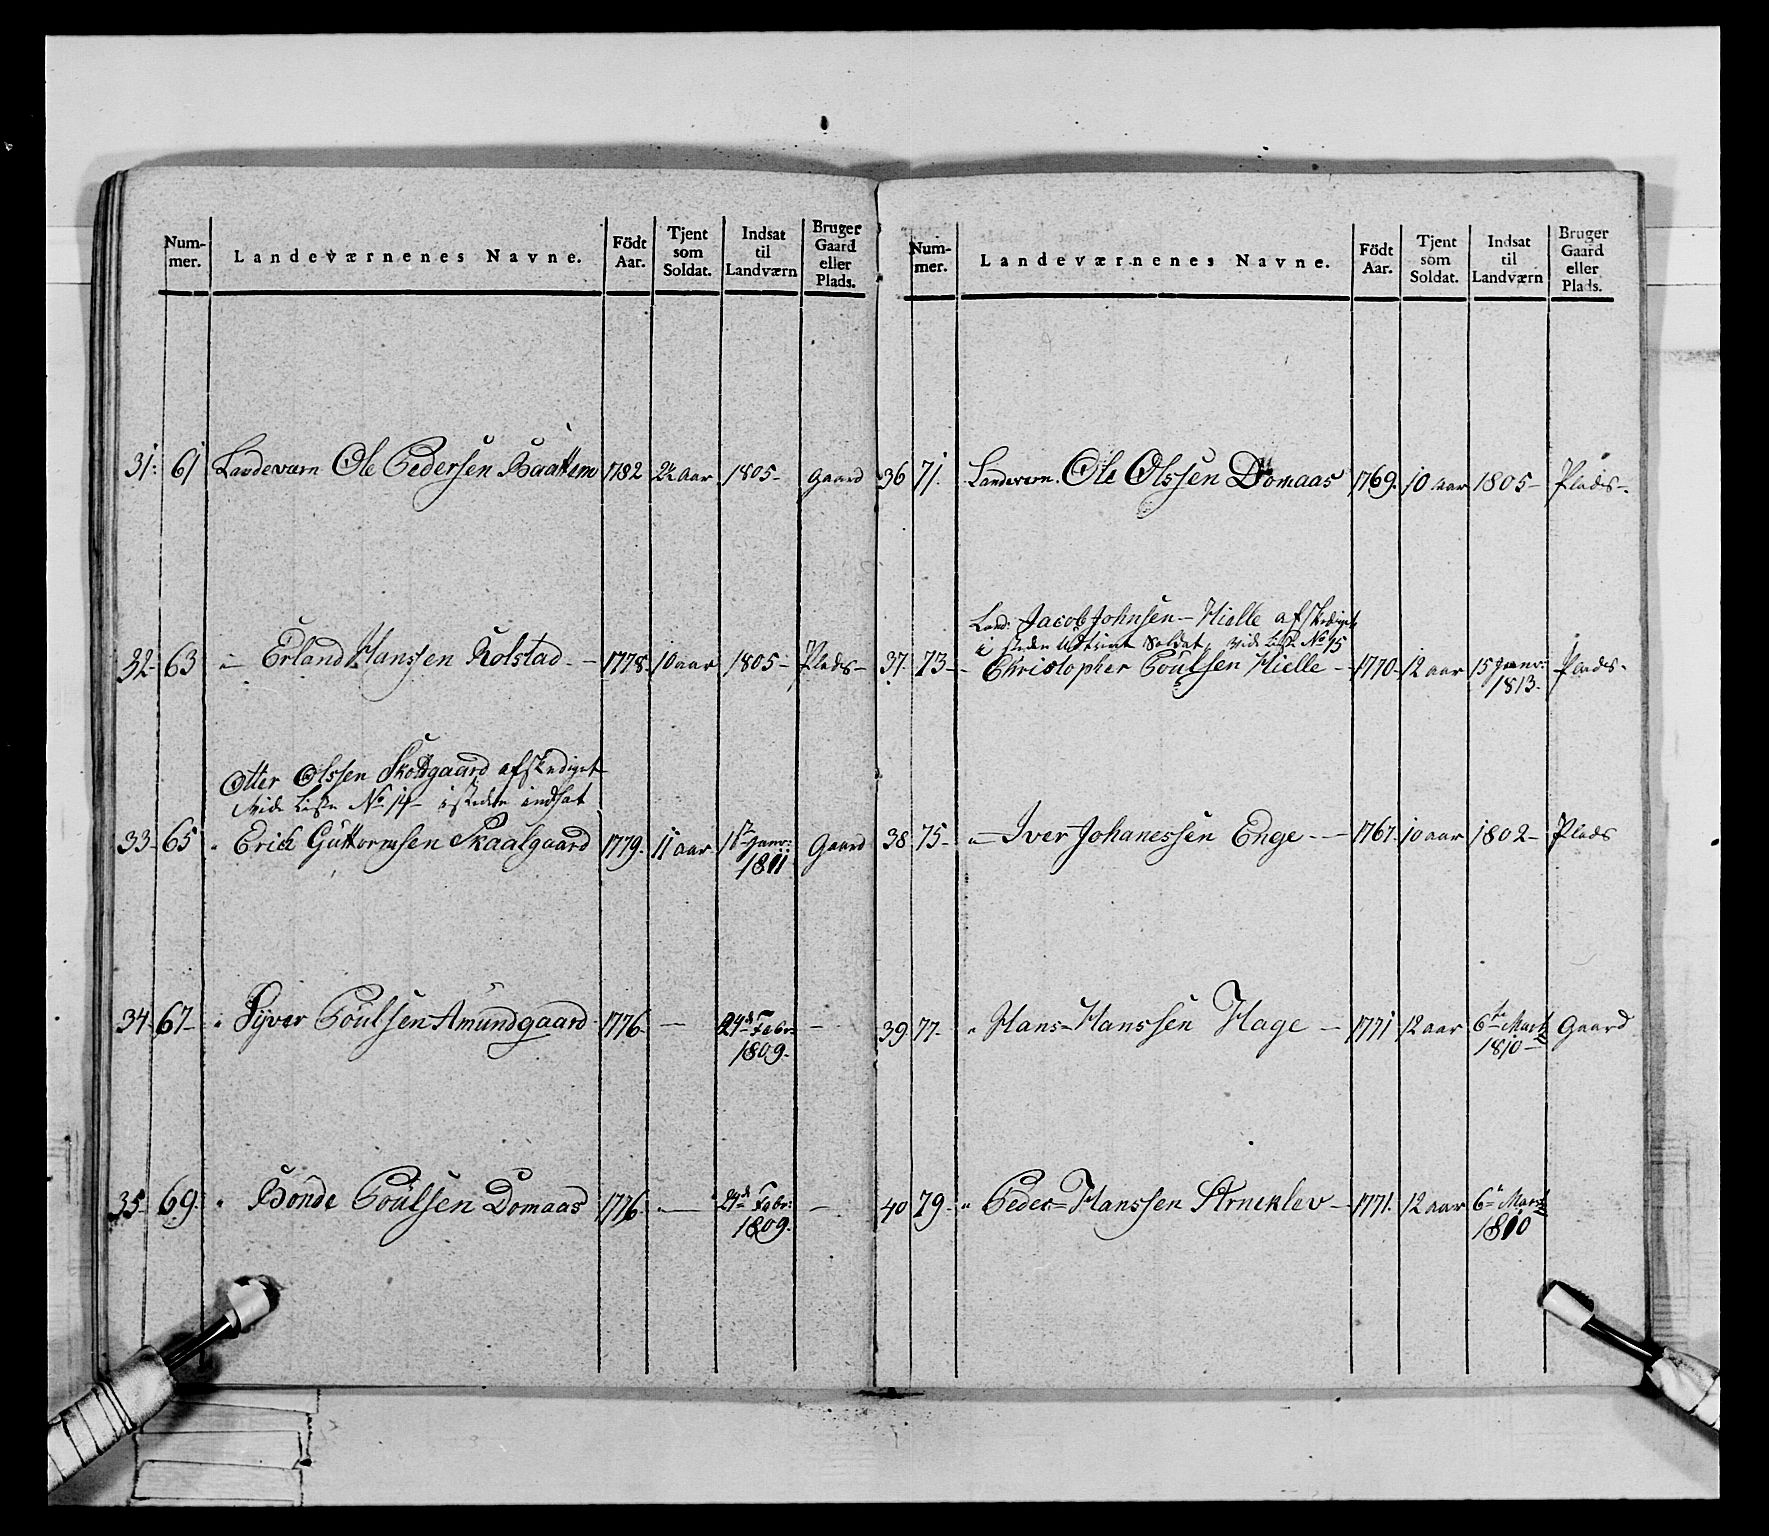 Num-
mer.
Landeværnenes Navne.
Födt
Aar.
Tjent
som
Soldat.
Indsat
til
Landværn
Bruger
Gaard
eller
Plads.
31: 61 Landeværn Ole Pedersen Baattem 1782 2½ aar 1805- Gaard
32- 63 - Erland Hanssen Kolstad - 1778. 10 aar 1805- Plads-
Otter Olssen Skottgaard afskediget
Vide Liste No 14- isteden indsat
33- 65 " Erick Guttormsen Skaalgaard 1779. 11 aar 1ste Janv: Gaard
1811
34- 67- " Syver Poulsen Amundgaard 1776 - 24de Febr: -
1809-
35- 69. " Bonde Poulsen Domaas 1776. - 24de Febr: -
1809.
Num-
mer.
Landeværnenes Navne.
Födt
Aar.
Tjent
som
Soldat.
Indsat
til
Landværn
Bruger
Gaard
eller
Plads.
36 71. Landevern. Ole Olssen Domaas 1769. 10 aar 1805- Plads-
Land: Jacob Johnsen - Hielle afskediget
i steden Soldat, vide Liste No 15
37- 73- - Christopher Poulsen Hielle - 1770- 12 aar 15 Janv: Plads-
1813.
38 75- " Iver Johanessen Enge - - 1767. 10 aar 1802- Plads
39 77- " Hans Hanssen Hage - 1771 12 aar 6te Marts Gaard
1810-
40 79- " Peder Hanssen Arneklev - 1771. 12 aar 6te Marts
1810